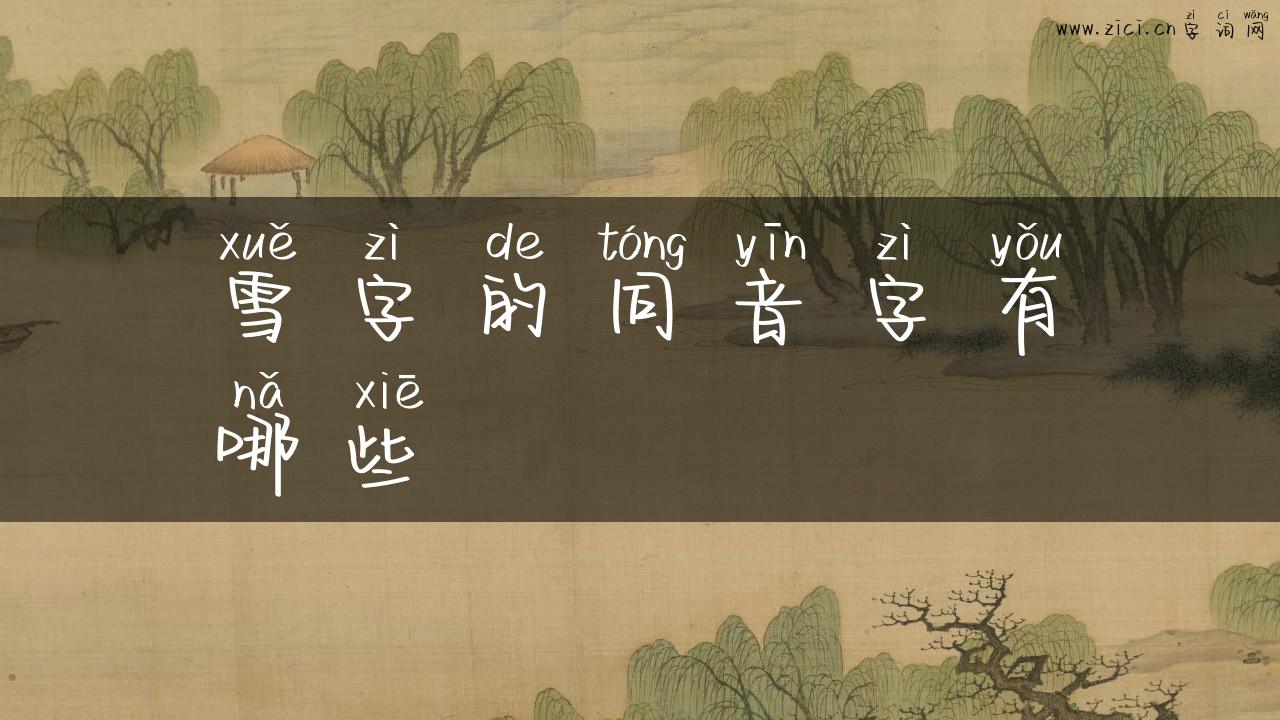 zì cí wǎng
www.zici.cn 字词网
xuě zì de tóng yīn zì yǒu
雪字的同音字有
nǎ xiē
哪些